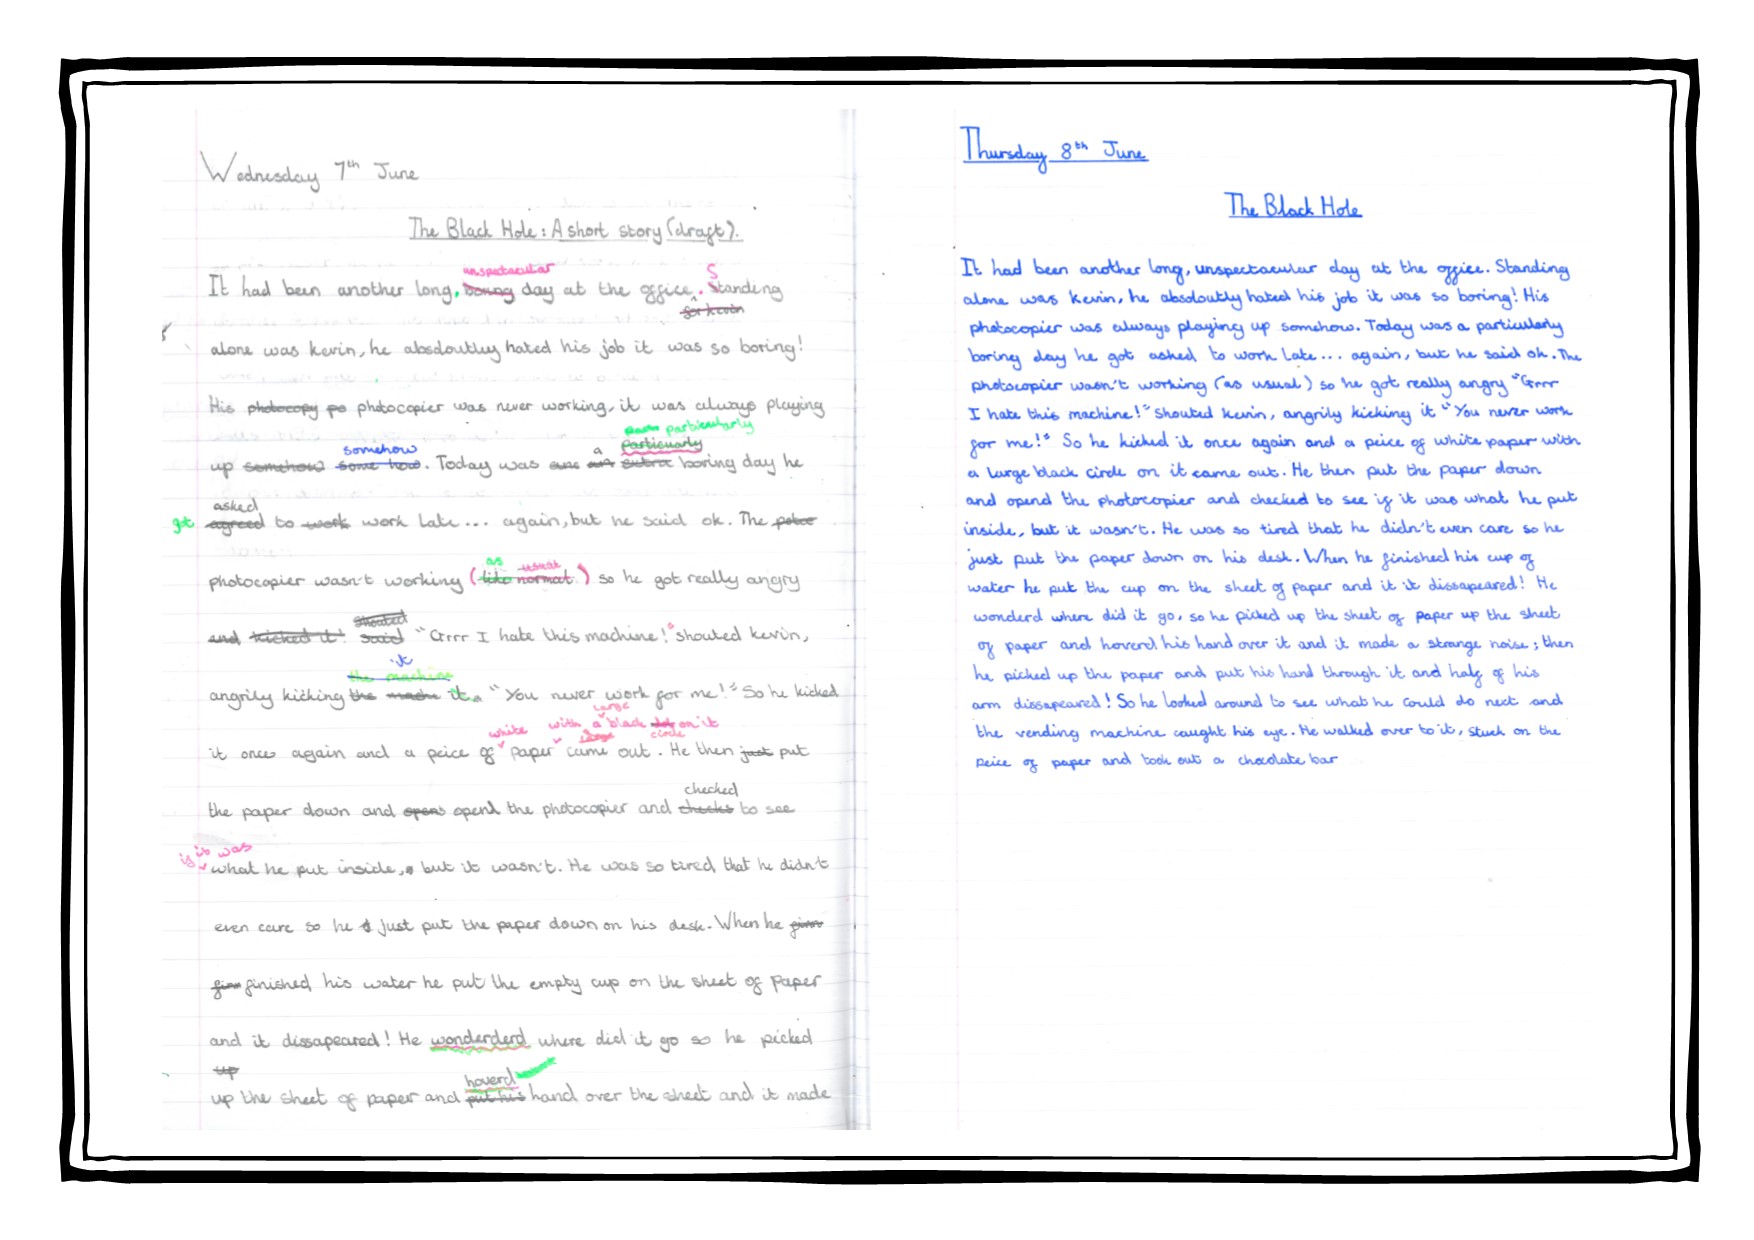 Wednesday 7th June
The Black Hole: A short story (draft).
unspectacular S
It had been another long, boring day at the office. Standing
for kevin
alone was kevin, he absdoutley hated his job it was so boring!
His photocopy po photocopier was never working, it was always playing
particularly
somehow a Particuarly
up somehow some how. Today was one an extra boring day he
asked
got agreed to work work late... again, but he said ok. The
as usual
photocopier wasn't working (like normal) so he got really angry
shouted
and kicked it! said "Grrr I hate this machine!" shouted kevin,
it
the machine
angrily kicking the machine it. "You never work for me!" So he kicked
large
white with a black dot on it
large circle
it once again and a peice of paper came out. He then just put
checked
the paper down and opens opend the photocopier and checks to see
if it was
what he put inside, but it wasn't. He was so tired that he didn't
even care so he just put the paper down on his desk. When he
finished his water he put the empty cup on the sheet of paper
and it dissapeared! He wonderderd where did it go so he picked
up
hoverd
up the sheet of paper and put his hand over the sheet and it made
Thursday 8th June
The Black Hole
It had been another long, unspectacular day at the office. Standing
alone was kevin, he absdoutly hated his job it was so boring! His
photocopier was always playing up somehow. Today was a particularly
boring day he got asked to work late... again, but he said ok. The
photocopier wasn't working (as usual) so he got really angry "Grrr
I hate this machine!" shouted kevin, angrily kicking it "You never work
for me!" So he kicked it once again and a peice of white paper with
a large black circle on it came out. He then put the paper down
and opend the photocopier and checked to see if it was what he put
inside, but it wasn't. He was so tired that he didn't even care so he
just put the paper down on his desk. When he finished his cup of
water he put the cup on the sheet of paper and it it dissapeared! He
wonderd where did it go, so he picked up the sheet of paper up the sheet
of paper and hoverd his hand over it and it made a strange noise; then
he picked up the paper and put his hand through it and half of his
arm dissapeared! So he looked around to see what he could do next and
the vending machine caught his eye. He walked over to it, stuck on the
peice of paper and took out a chocolate bar